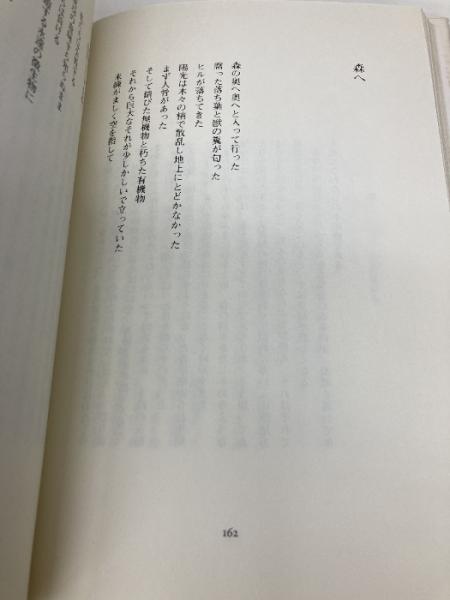 森へ
森の奥へ奥へと入って行った
腐った落ち葉と獣の糞が匂った
ヒルが落ちてきた
陽光は木々の梢で散乱し地上にとどかなかった
まず人骨があった
そして錆びた無機物と朽ちた有機物
それから巨大なそれが少しかしいで立っていた
未練がましく空を指して
162